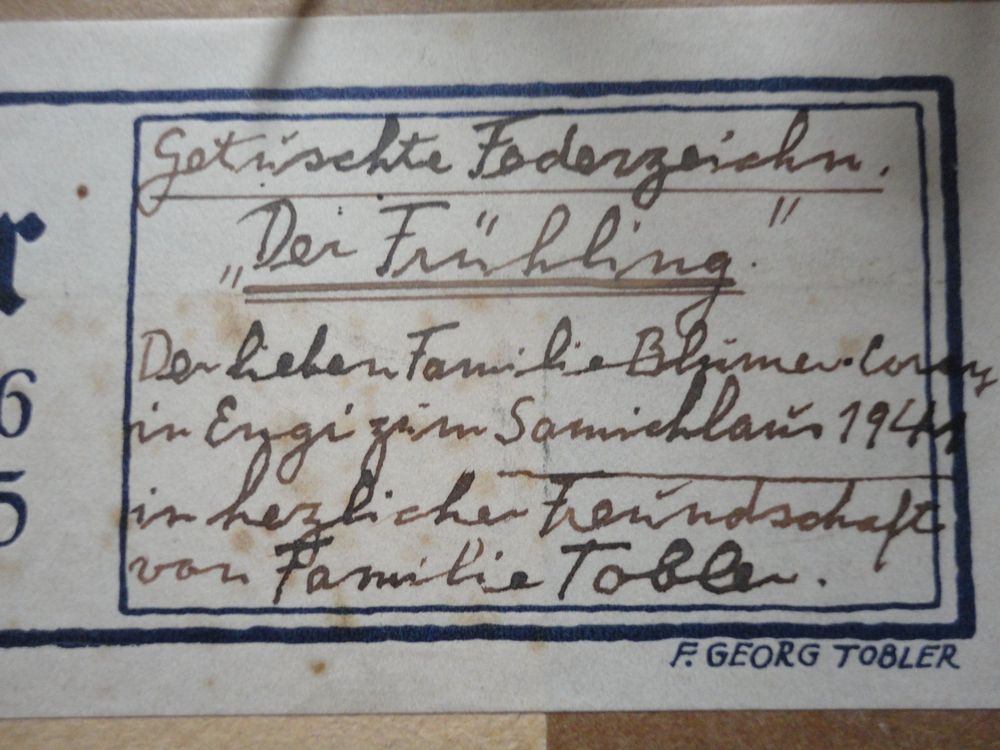 r
6
5
Getuschte Federzeichn.
„Der Frühling."
Der lieben Familie Blumer-Coray
in Engi zum Samichlaus 1941
in herzlicher Freundschaft
von Familie Tobler.
F. GEORG TOBLER